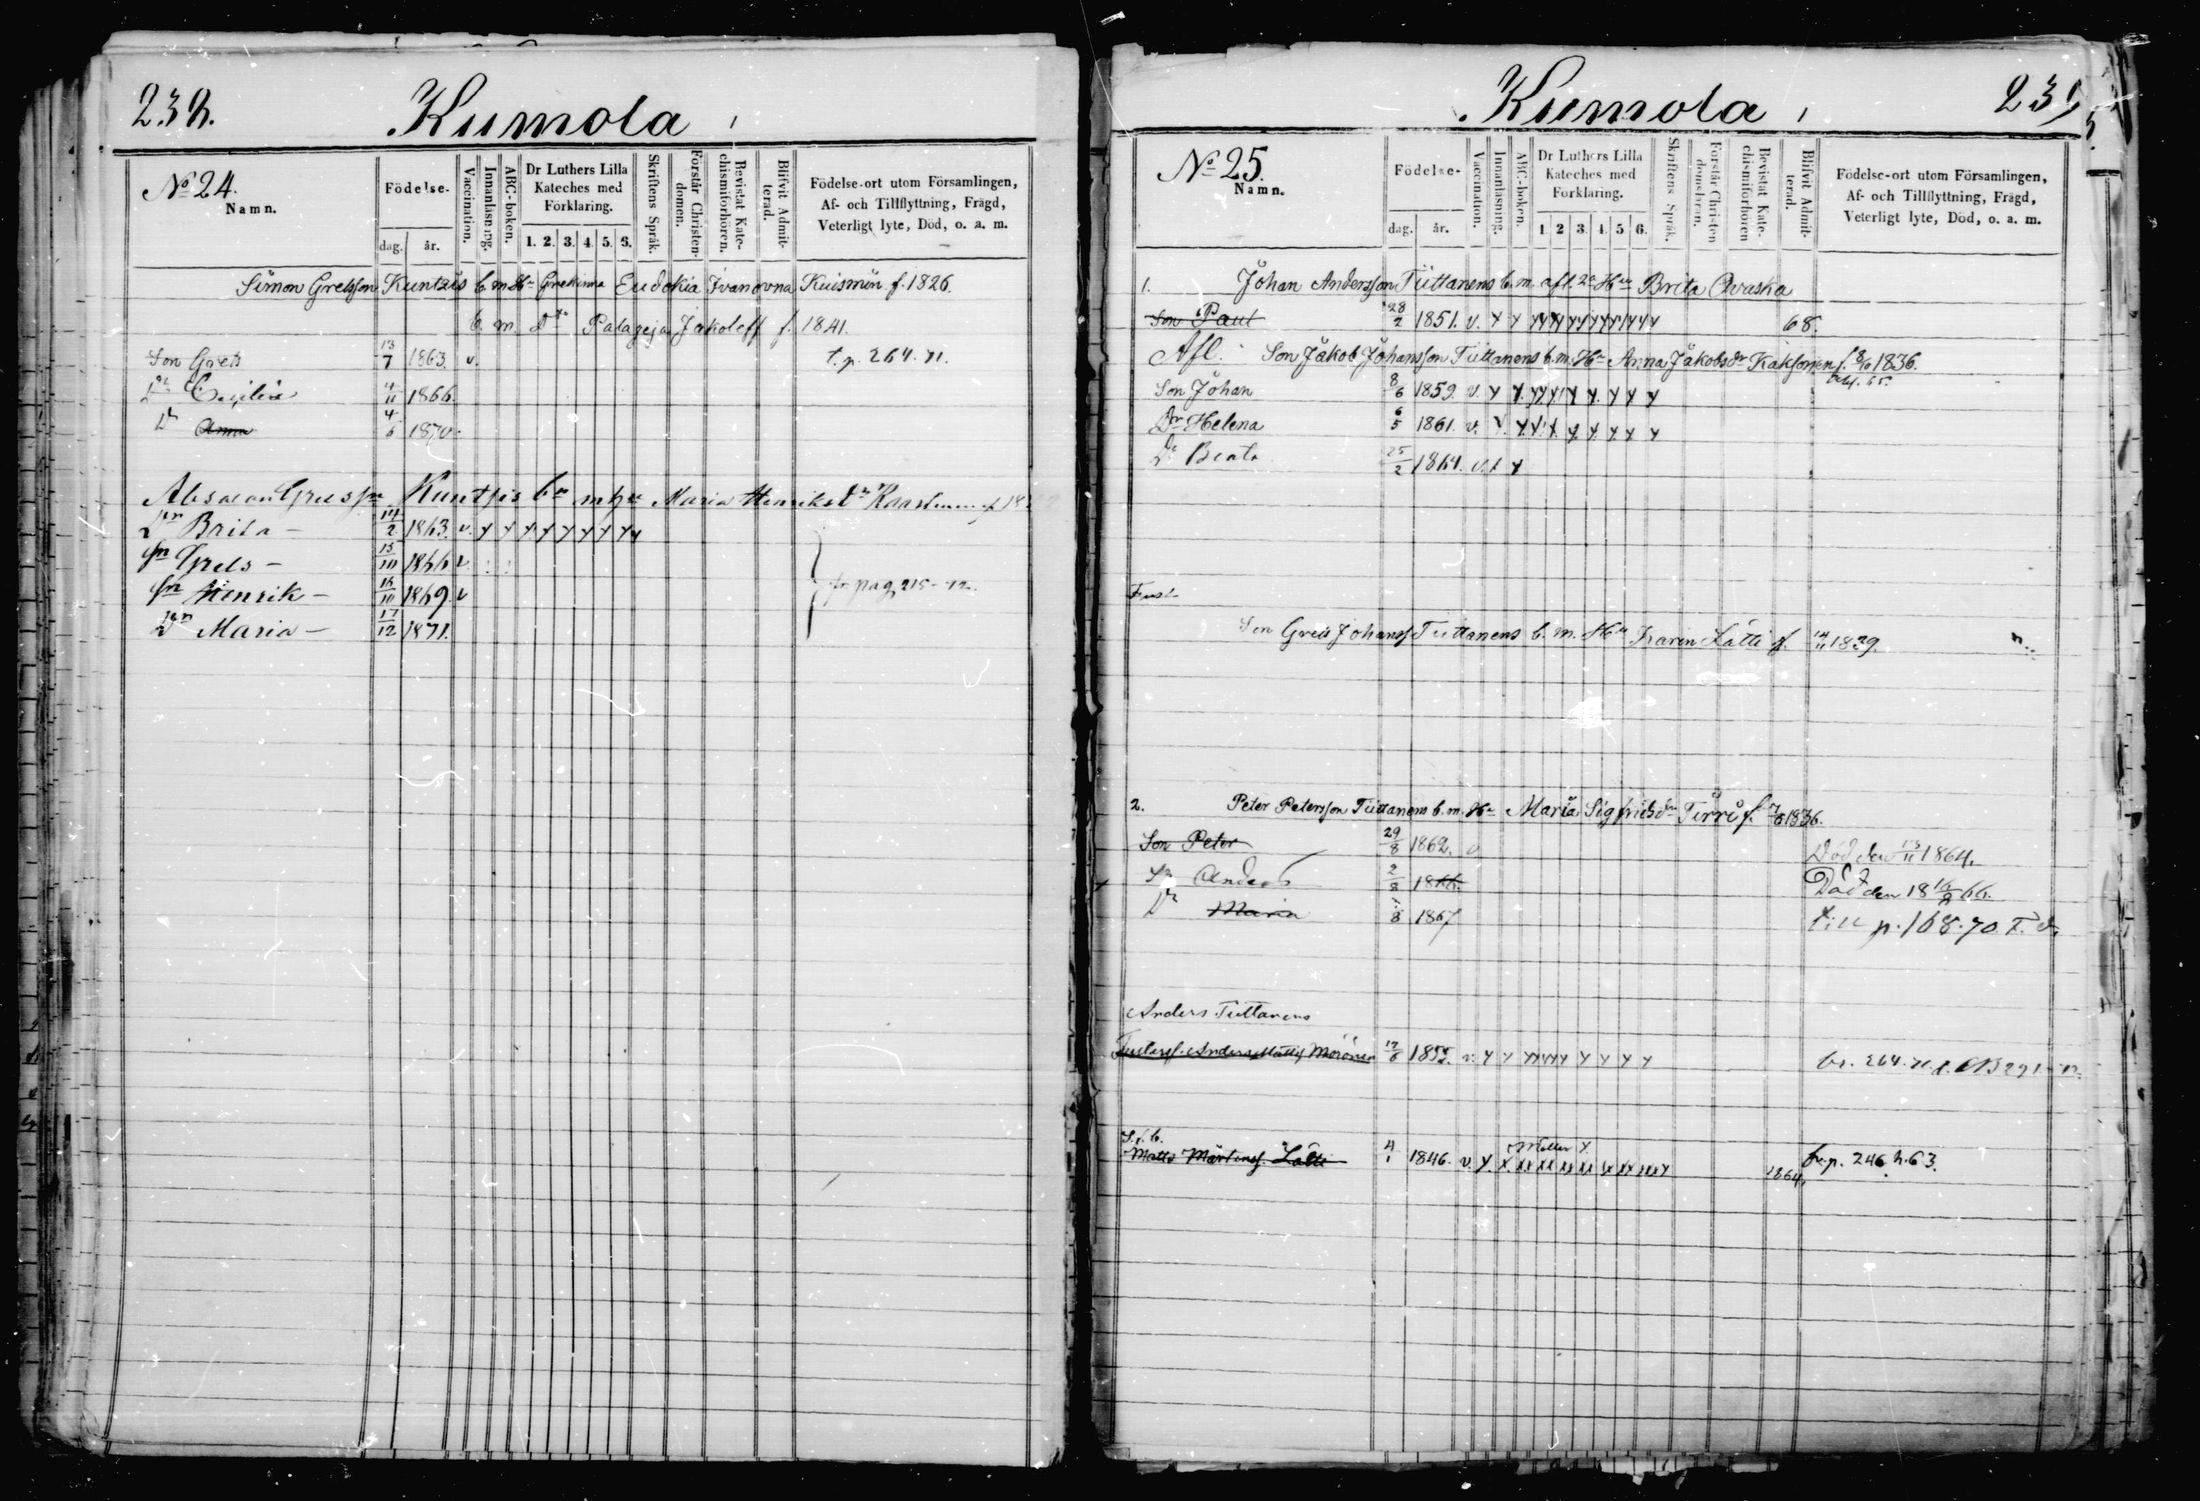 238.
Kumola
No 24.
Namn.
Födelse-
dag. år.
Vaccination.
Innanläsning.
ABC-boken.
Dr Luthers Lilla
Kateches med
Förklaring.
1. 2. 3. 4. 5. 6.
Skriftens Språk.
Förstår Christen-
domen.
Bevistat Kate-
chismiförhören.
Blifvit Admit-
terad.
Födelse-ort utom Församlingen,
Af- och Tillflyttning, Frägd,
Veterligt lyte, Död, o. a. m.
Simon Gretsson Kuntzis b. m. Hu Grekinna Eudokia Ivanovna Kuismin f. 1826.
b. m. Dto Palageja Jakoleff f. 1841.
Son Grels 13/7 1863 v. t. p. 264. 71.
Dr Cecilia 4/11 1866.
Dr Anna 4/6 1870.
Kuntzis bn m hu Maria Henriksdr
Dr Brita – 14/2 1863. v. y y y y y y y y y
sn Grels – 13/10 1866 v.
sn Henrik – 16/10 1869. v fr. pag 215 - 72.
Dr Maria – 17/12 1871.
Kumola
239
No 25.
Namn.
Födelse-
dag. år.
Vaccination.
Innanläsning.
ABC-boken.
Dr Luthers Lilla
Kateches med
Förklaring.
1. 2 3. 4. 5 6.
Skriftens Språk.
Förstår Christen
domsläran.
Bevistat Kate-
chismiförhören
Blifvit Admit-
terad.
Födelse-ort utom Församlingen,
Af- och Tillflyttning, Frägd,
Veterligt lyte, Död, o. a. m.
1. Johan Andersson Tüttanens b. m. afl. 2a Hu Brita Avaska
Son Paul 28/2 1851. v. y y y y y y y y y y y 68.
Afl. Son Jakob Johansson Tüttanens b. m. Hu Anna Jakobsdr Kaksonen f. 8/10 1836.
Son Johan 8/6 1859. v. y y y y y y y y y y
Dr Helena 6/5 1861. v. y y y y y y y y y
Dr Beata 25/2 1864. v. y y
Son Grels Johanss Tüttanens b. m. Hu Karin Lätti f. 14/11 1839.
2. Peter Petersson Tüttanens b. m. Hu Maria Sigfridsdr Tirri f. 1836.
Son Peter 29/8 1862. v Död den 13/11 1864.
Sn Anders 2/8 1866. Död den 18 16/9 66.
Dr Maria 1867 till p. 168. 70.
Anders Tuttanens
Anders Mattss Moronen 12/6 1855. v. y y y y y y y y y y
S. f. b.
Matts Mårtenss. Lätti 4/1 1846. v. y x x x x x x x x x y 1864. fr. p. 246. 63.